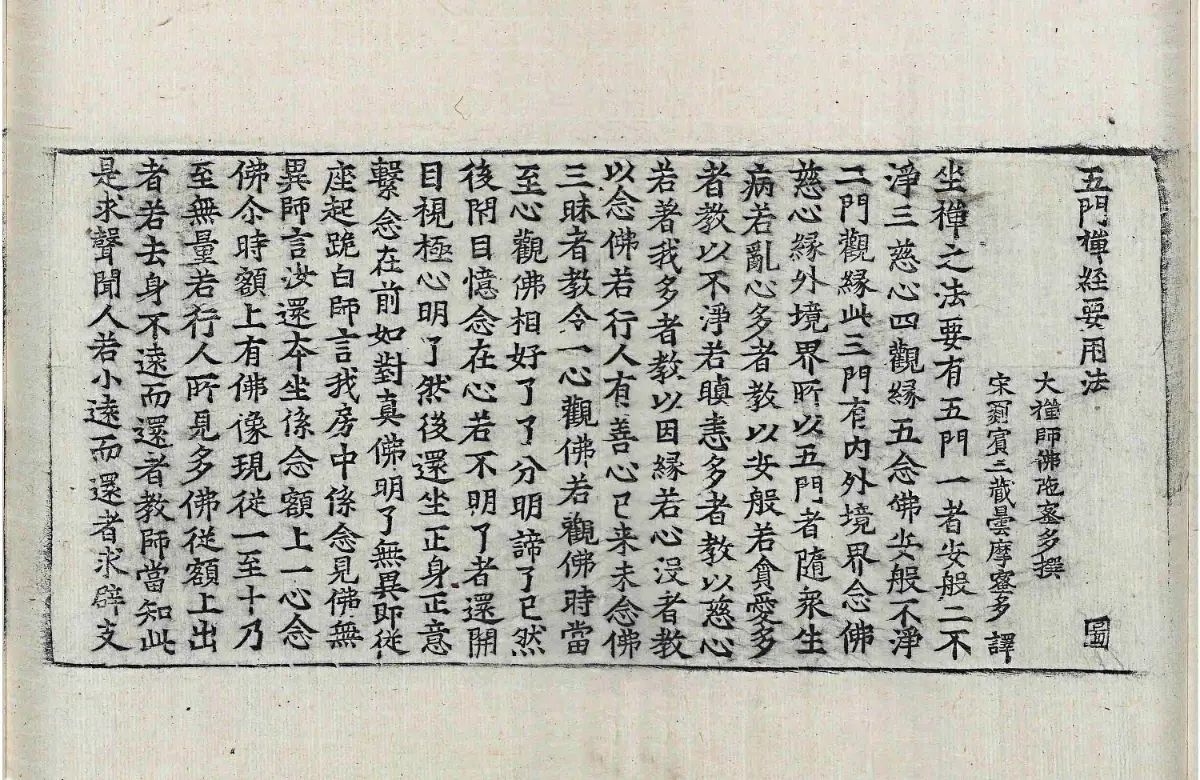 五門禪經要用法
圖
大禪師佛陁蜜多撰
宋罽賓三藏曇摩蜜多譯
坐禪之法要有五門一者安般二不
淨三慈心四觀緣五念佛安般不淨
二門觀緣此三門有內外境界念佛
慈心緣外境界所以五門者隨衆生
病若亂心多者教以安般若貪愛多
者教以不淨若瞋恚多者教以慈心
若著我多者教以因緣若心沒者教
以念佛若行人有善心已来未念佛
三昧者教令一心觀佛若觀佛時當
至心觀佛相好了了分明諦了已然
後閇目憶念在心若不明了者還開
目視極心明了然後還坐正身正意
繫念在前如對真佛明了無異即從
座起跪白師言我房中係念見佛無
異師言汝還本坐係念額上一心念
佛尒時額上有佛像現從一至十乃
至無量若行人所見多佛從額上出
者若去身不遠而還者教師當知此
是求聲聞人若小遠而還者求辟支